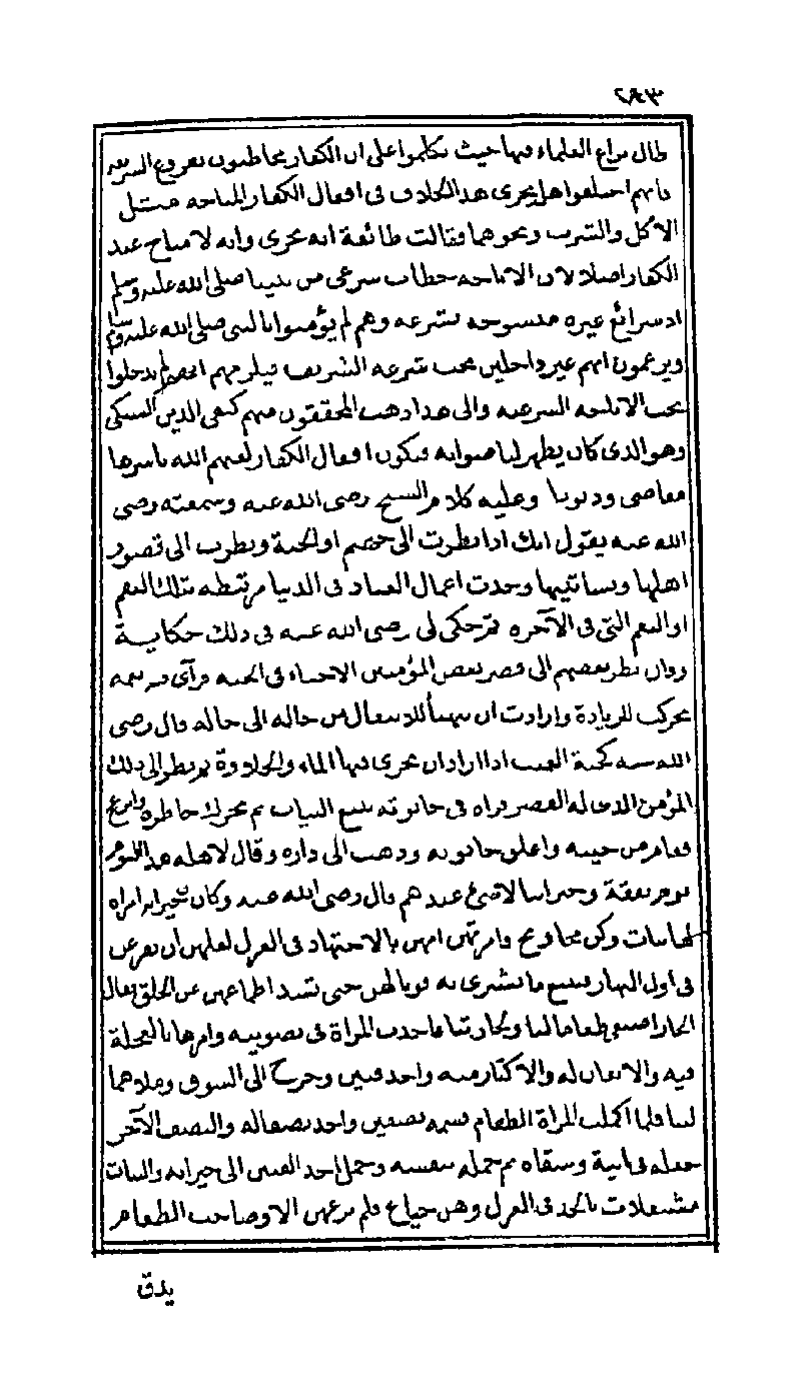 ٢٩٣
طال نزاع العلماء فيها حيث تكلموا على ان الكفار مخاطبون بفروع الشريعة
فانهم اختلفوا هل يجرى هذا الخلاف فى افعال الكفار المباحة مثل
الاكل والشرب ونحوهما فقالت طائفة انه يجرى وانه لا مباح عند
الكفار اصلا لان الاباحة خطاب شرعى من نبينا صلى الله عليه وسلم
اذ شرائع غيره منسوخة بشرعه وهم لم يؤمنوا بالنبى صلى الله عليه وسلم
ويزعمون انهم غير داخلين تحت شرعه الشريف فيلزمهم انهم لم يدخلوا
تحت الاباحة الشرعية والى هذا ذهب المحققون منهم كتقى الدين السبكى
وهو الذى كان يظهر لنا صوابه فتكون افعال الكفار لعنهم الله باسرها
معاصى وذنوبا وعليه كلام الشيخ رضى الله عنه وسمعته رضى
الله عنه يقول انك اذا نظرت الى جهنم او الجنة ونظرت الى قصور
اهلها وبساتينها وجدت اعمال العباد فى الدنيا مرتبطة بتلك النعم
او النقم التى فى الآخرة ثم حكى لى رضى الله عنه فى ذلك حكاية
وقال نظر بعضهم الى قصر بعض المؤمنين الاحياء فى الجنة فرأى فيه نعمة
تحركت للزيادة وارادت ان تتهيأ للانتقال من حالة الى حالة قال رضى
الله عنه كحبة العنب اذا اراد ان يجرى فيها الماء والحلاوة ثم نظر الى ذلك
المؤمن الذى له القصر فرآه فى حانوته يبيع الثياب ثم تحرك خاطره وانزعج
فقام من حينه واغلق حانوته وذهب الى داره وقال لاهله هذا اليوم
يوم نفقة وجيراننا لاشئ عندهم قال رضى الله عنه وكان بجيرانه امراة
لها بنات وكن محاويج وامرتهن امهن بالاجتهاد فى الغزل لعلهن ان يفرغن
فى اول النهار فتبيع ما تشترى به قوتا لهن حتى تسد اطماعهن عن الخلق فقال
الجار اصنعى طعاما لنا ولجارتنا فاخذت المراة فى تصويبه وامرها بالعجلة
فيه والاتقان له والاكثار منه واخذ قبين وخرج الى السوق وملأهما
لبنا فلما اكملت المراة الطعام قسمه نصفين واخذ نصفا له والنصف الآخر
جعله فى آنية وسقاه ثم حمله بنفسه وحمل احد القبين الى جيرانه والبنات
مشتغلات بالجد فى الغزل وهن جياع فلم يرعهن الا وصاحب الطعام
يدق